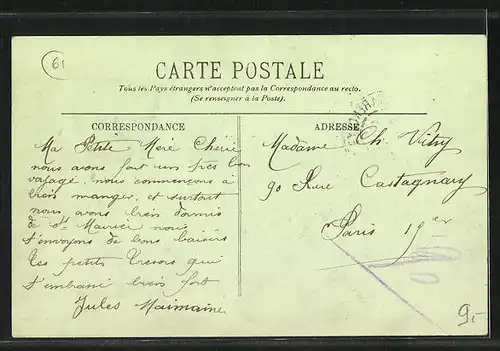 61
CARTE POSTALE
Tous les Pays étrangers n'acceptent pas la Correspondance au recto.
(Se renseigner à la Poste).
CORRESPONDANCE
Ma Petite Méré Cherie
nous avons fait un tres bon
voyage, nous commençons à
bien manger, et surtout
nous avons bien dormis
de St Maurice nous
t'envoyons de bons baisers
tes petits tresors qui
t'embrant bien fort
Jules
ADRESSE
Madame Ch. Vitry
90 Rue Castagnary
Paris 15er
9-